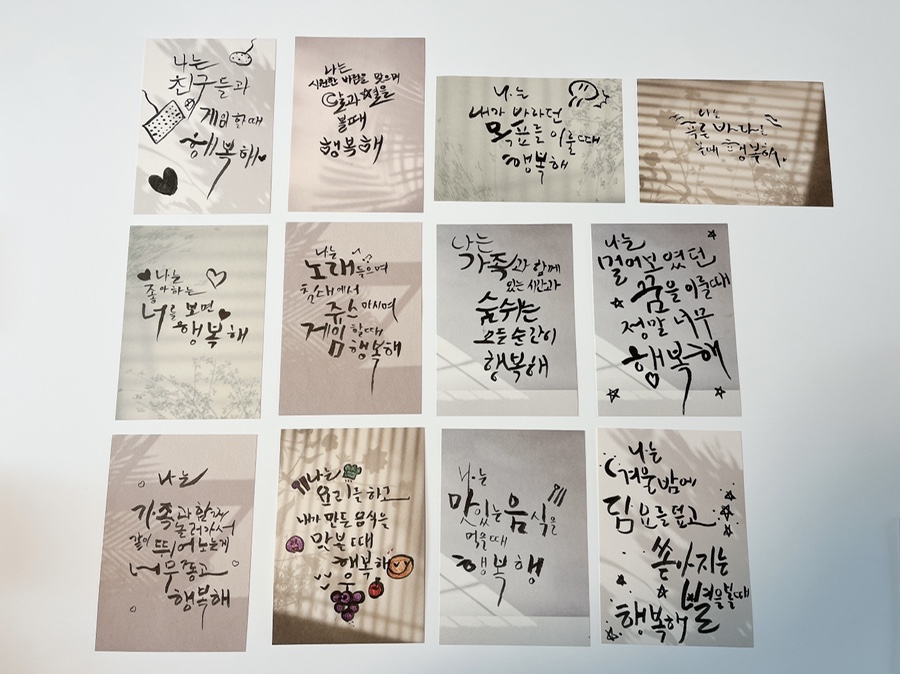 나는
친구들과
게임할때
행복해
나는
시원한 바람을 맞으며
달과 별을
볼때
행복해
나는
내가 바라던
목표를 이룰때
행복해
나는
푸른 바다를
볼때 행복해.
나는
좋아하는
너를 보면
행복해
나는
노래들으며
침대에서
쥬스마시며
게임할때
행복해
나는
가족과 함께
있는 시간과
숨쉬는
모든 순간이
행복해
나는
멀어보였던
꿈을 이룰때
정말 너무
행복해
나는
가족과 함께
놀러가서
같이 뛰어노는게
너무좋고
행복해
나는
요리를하고
내가 만든 음식을
맛볼때
행복해
나는
맛있는 음식을
먹을때
행복행
나는
겨울밤에
담요를덮고
쏟아지는
별을볼때
행복해